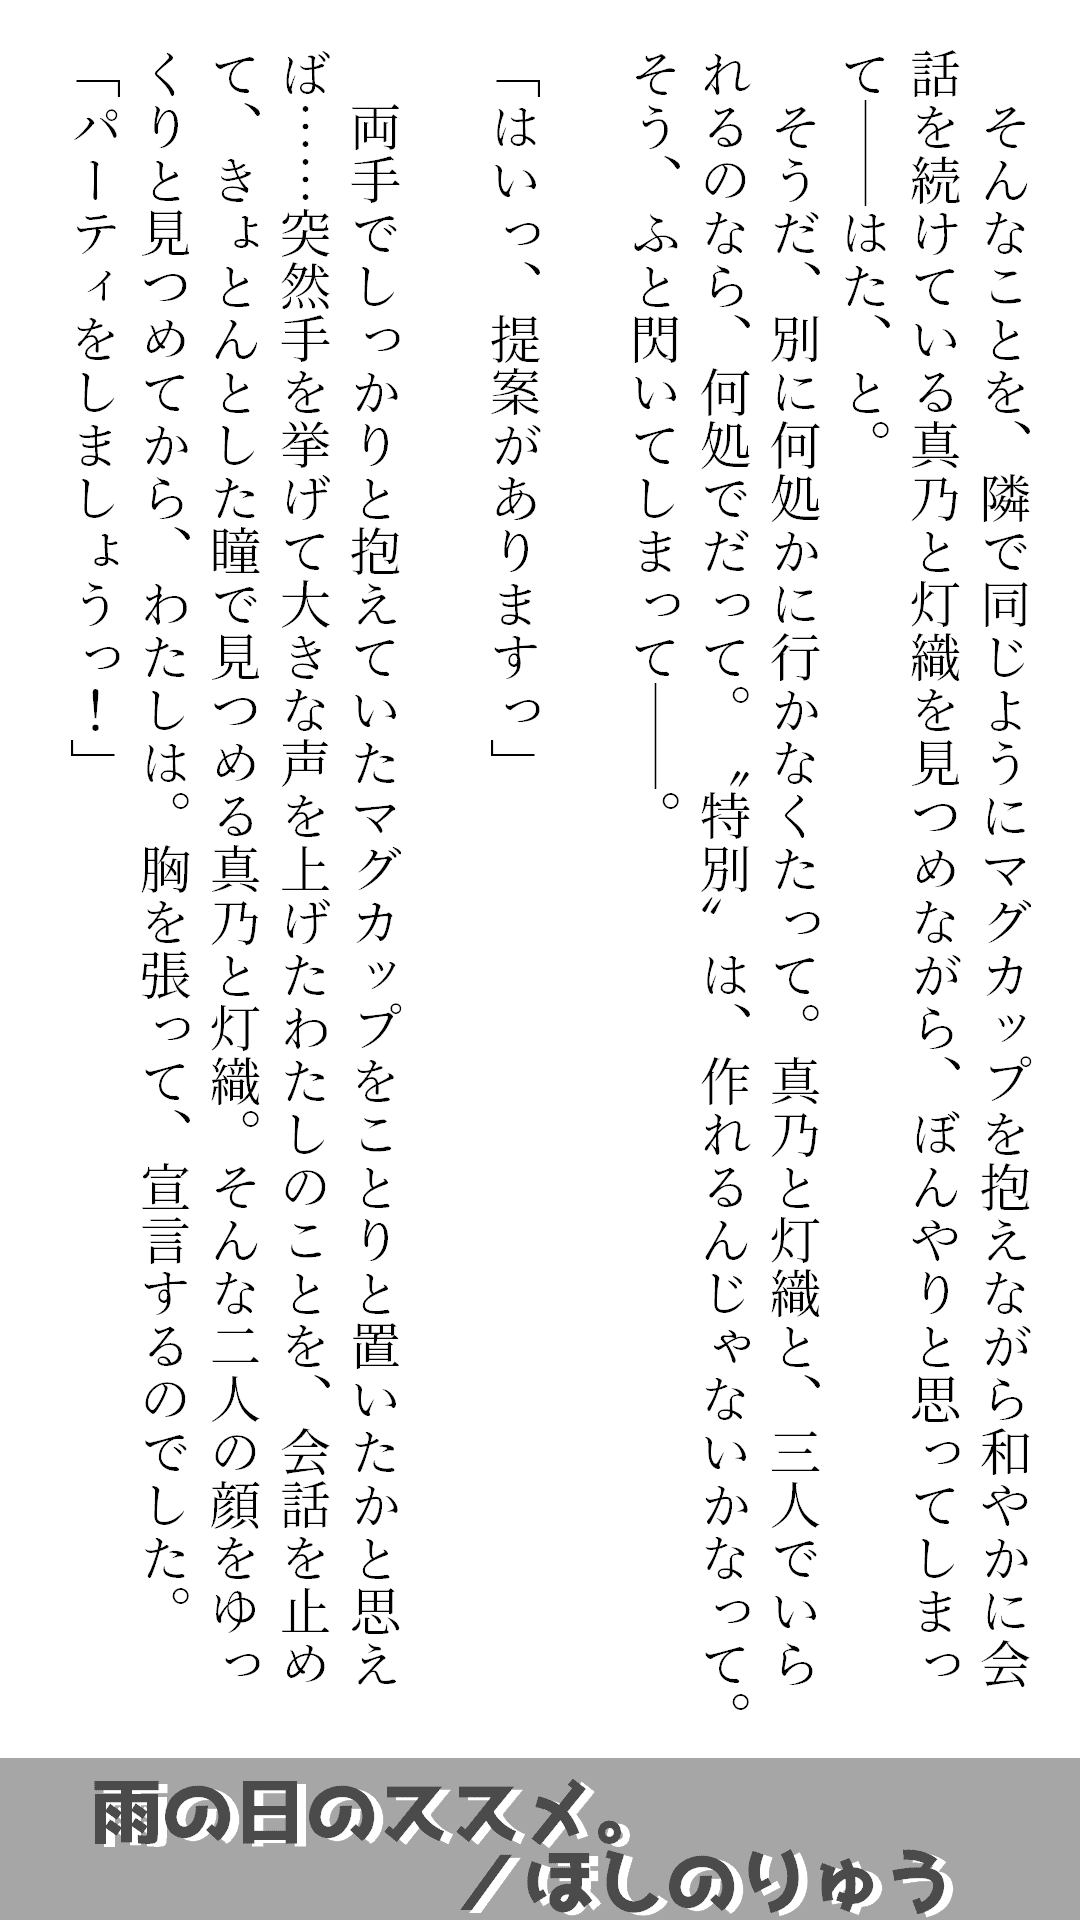 そんなことを、隣で同じようにマグカップを抱えながら和やかに会
話を続けている真乃と灯織を見つめながら、ぼんやりと思ってしまっ
て――はた、と。
　そうだ、別に何処かに行かなくたって。真乃と灯織と、三人でいら
れるのなら、何処でだって。〝特別〟は、作れるんじゃないかなって。
そう、ふと閃いてしまって――。
「はいっ、提案がありますっ」
　両手でしっかりと抱えていたマグカップをことりと置いたかと思え
ば……突然手を挙げて大きな声を上げたわたしのことを、会話を止め
て、きょとんとした瞳で見つめる真乃と灯織。そんな二人の顔をゆっ
くりと見つめてから、わたしは。胸を張って、宣言するのでした。
「パーティをしましょうっ！」
雨の日のススメ。
／ほしのりゅう